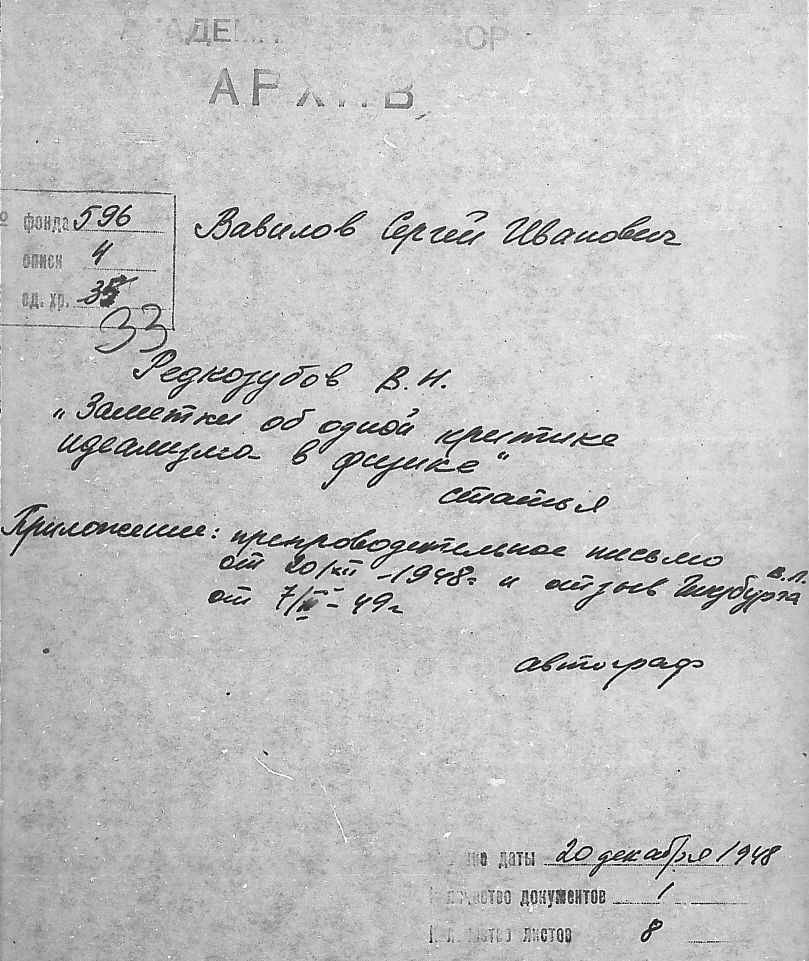 АКАДЕМИЯ НАУК СССР
АРХИВ
№ фонда 596
описи 4
ед. хр. 35
33
Вавилов Сергей Иванович
Редкозубов В. Н.
„Заметки об одной критике
идеализма в физике"
статья
Приложение: препроводительное письмо
от 20/XII - 1948 г и отзыв В. Л. Гинзбурга
от 7/ - 49 г
автограф
даты 20 декабря 1948
Количество документов 1
Количество листов 8